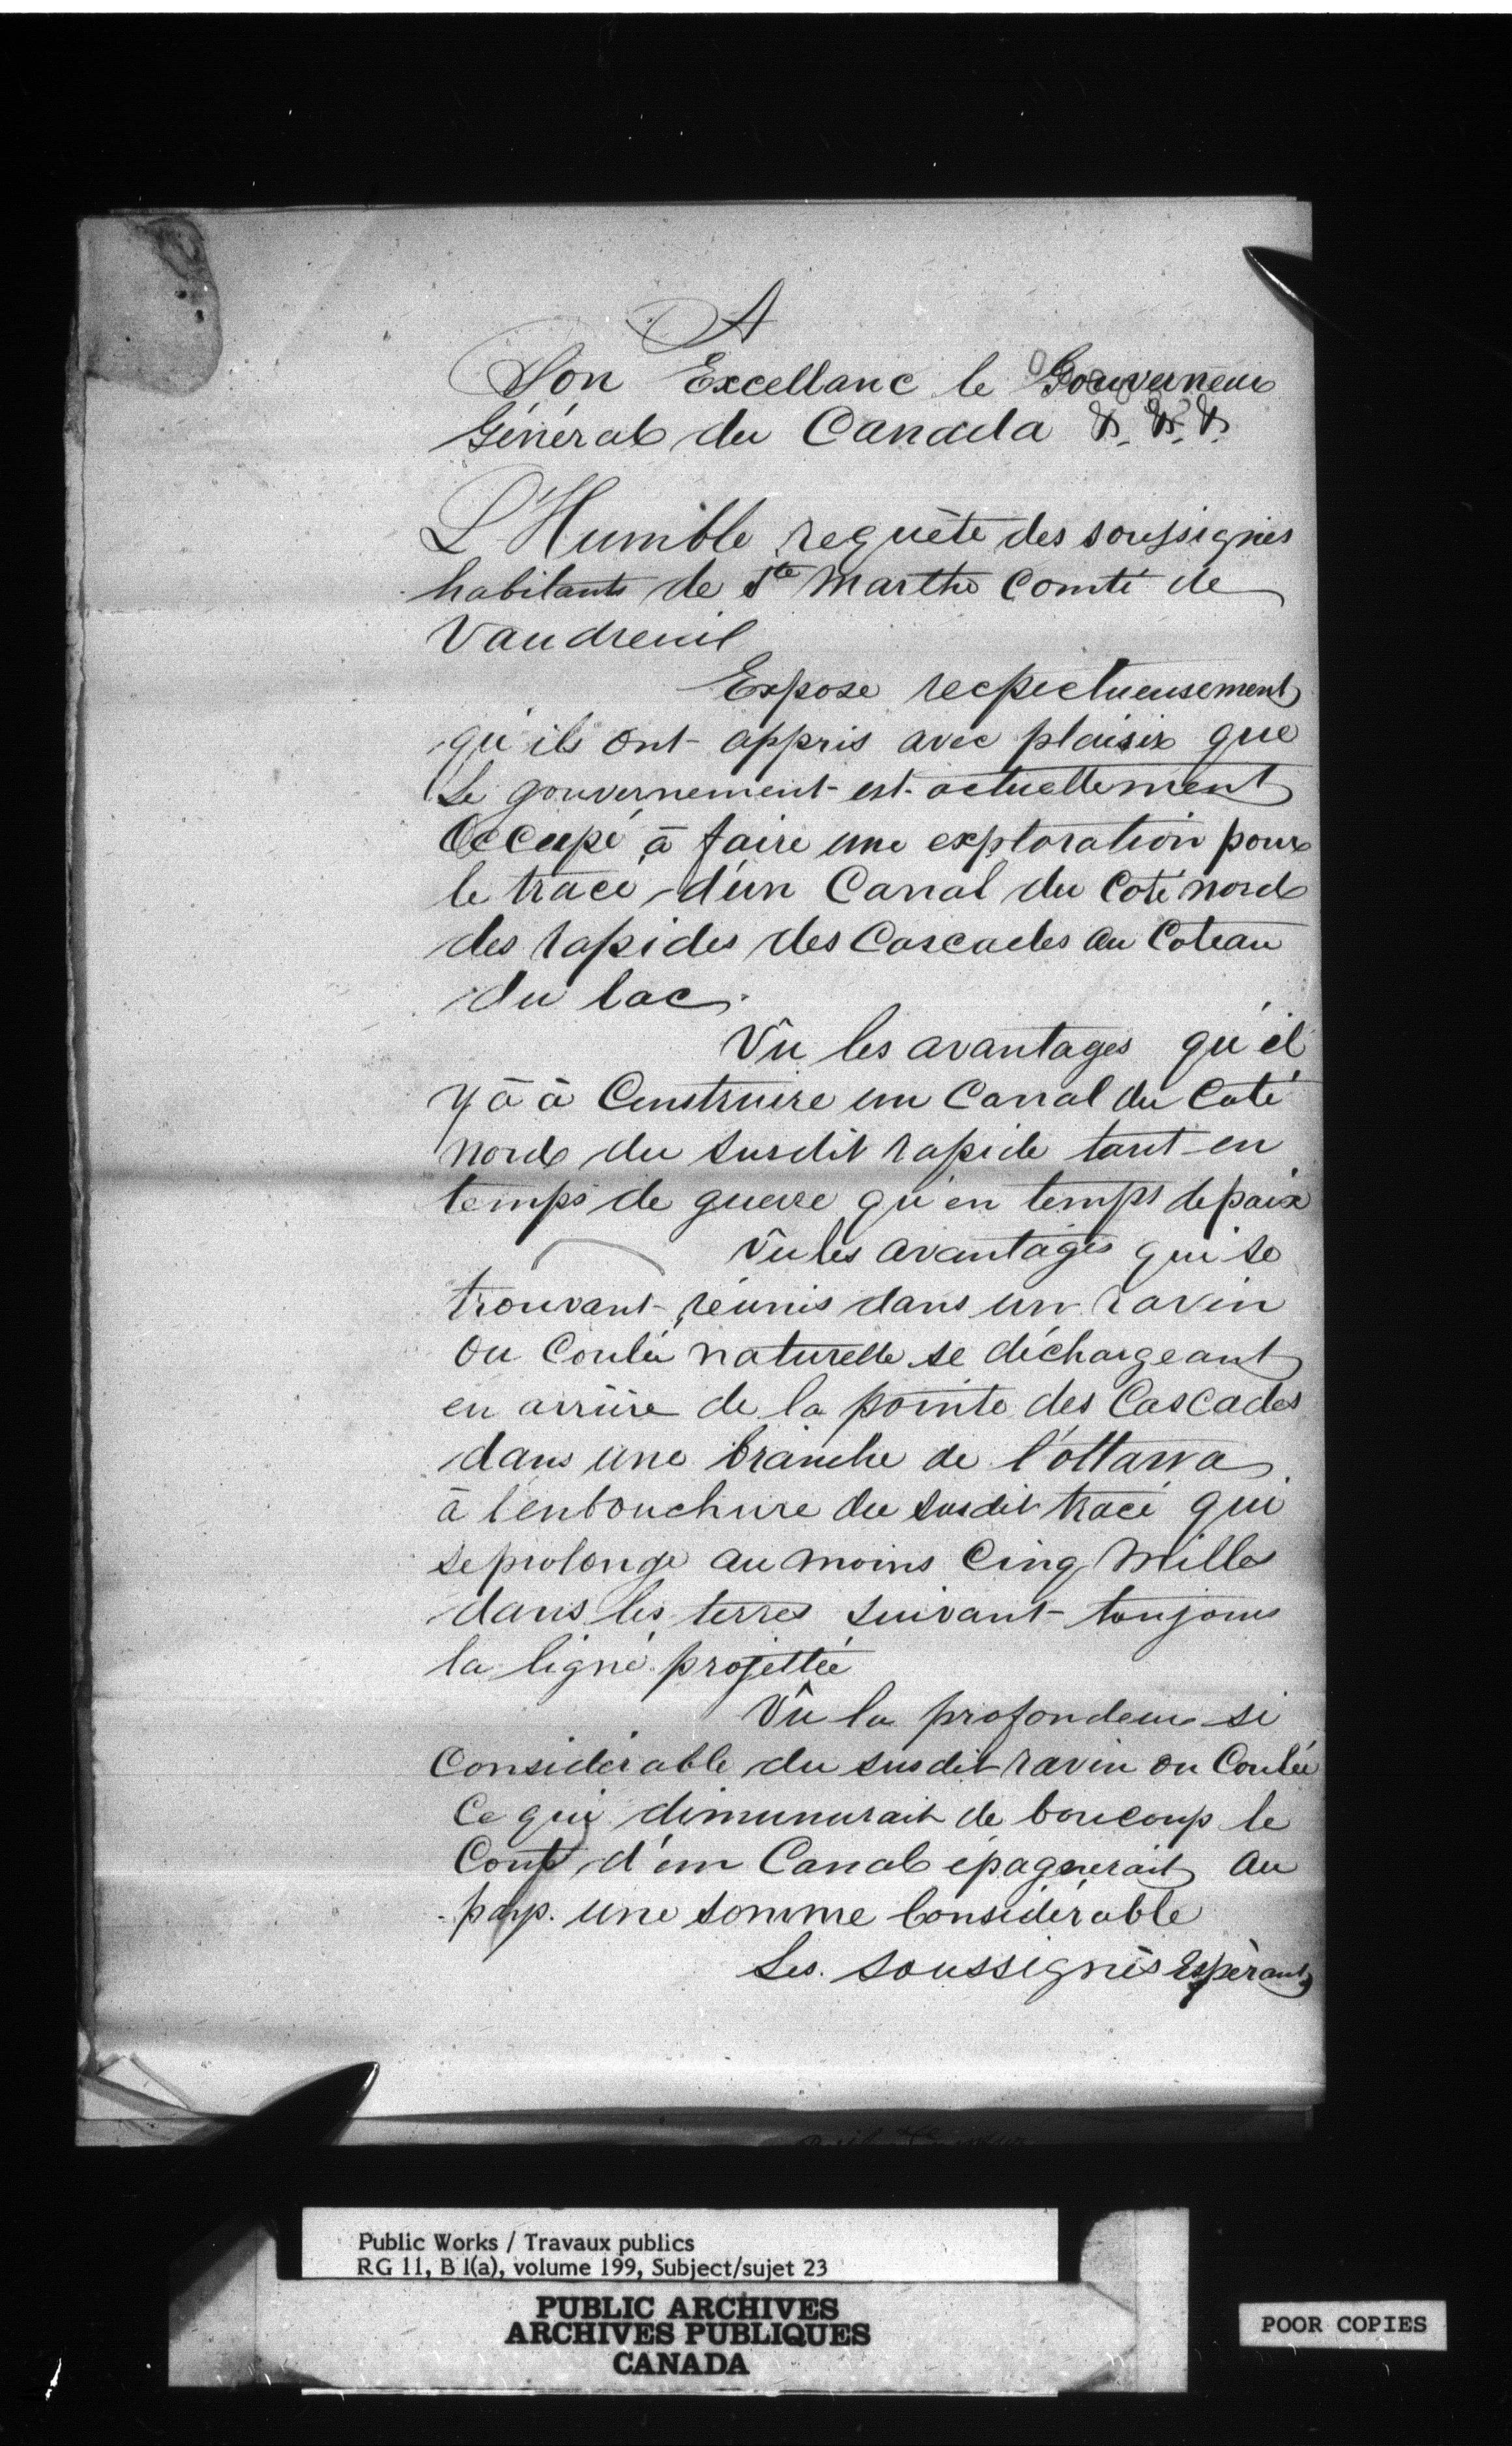 A
Son Excellanc le Gouverneur
Général du Canada &. &. &.
L'Humble requète des soussignés
habitants de Ste Marthe Comté de
Vaudreuil
Expose recpectueusement
qu'ils ont appris avec plaisir que
Le gouvernement est actuellement
Occupé à faire une exploration pour
le tracé d'un Canal du Coté nord
des rapides des Cascades au Coteau
du lac.
Vû les avantages qu'il
y à à Construire un Canal du Coté
nord du susdit rapide tant en
temps de guerre qu'en temps de paix
Vu les avantages qui se
trouvant réunis dans un ravin
ou Coulée naturelle se déchargeant
en arrière de la pointe des Cascades
dans une branche de l'ottawa
à l'enbouchure du susdit tracé qui
se prolonge au moins Cinq Milles
dans les terres suivant toujours
la ligne projettée
Vû la profondeur si
Considérable du susdit ravin ou Coulée
Ce qui dimunurait de boucoup le
Cout d'un Canal épagnerait au
pays. une somme Considérable
Les. soussignés Espèrant
Public Works / Travaux publics
RG 11, B 1(a), volume 199, Subject/sujet 23
PUBLIC ARCHIVES
ARCHIVES PUBLIQUES
CANADA
POOR COPIES